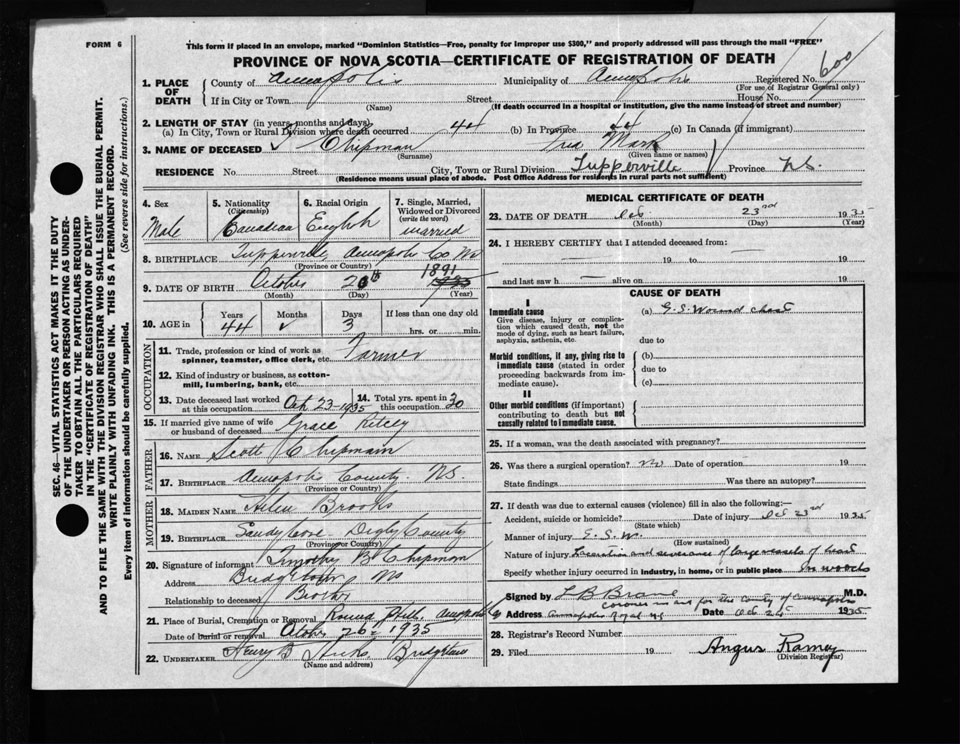 FORM 6
This form if placed in an envelope, marked "Dominion Statistics—Free, penalty for improper use $300," and properly addressed will pass through the mail "FREE"
PROVINCE OF NOVA SCOTIA—CERTIFICATE OF REGISTRATION OF DEATH
1. PLACE OF DEATH
County of Annapolis Municipality of Annapolis Registered No. 600
(For use of Registrar General only)
If in City or Town (Name) Street House No.
(If death occurred in a hospital or institution, give the name instead of street and number)
2. LENGTH OF STAY (in years, months and days)
(a) In City, Town or Rural Division where death occurred 44 (b) In Province 44 (c) In Canada (if immigrant)
3. NAME OF DECEASED Chipman Mark
(Surname) (Given name or names)
RESIDENCE No. Street City, Town or Rural Division Tupperville Province NS.
(Residence means usual place of abode. Post Office Address for residents in rural parts not sufficient)
4. Sex Male
5. Nationality (Citizenship) Canadian
6. Racial Origin English
7. Single, Married, Widowed or Divorced (write the word) married
8. BIRTHPLACE Tupperville Annapolis Co NS
(Province or Country)
9. DATE OF BIRTH October 20th 1891
(Month) (Day) (Year)
10. AGE in Years 44 Months ✓ Days 3 If less than one day old hrs. or min.
OCCUPATION
11. Trade, profession or kind of work as spinner, teamster, office clerk, etc. Farmer
12. Kind of industry or business, as cotton-mill, lumbering, bank, etc.
13. Date deceased last worked at this occupation Oct 23-1935
14. Total yrs. spent in this occupation 30
15. If married give name of wife or husband of deceased Grace
FATHER
16. NAME Scott Chipman
17. BIRTHPLACE Annapolis County. NS.
(Province or Country)
MOTHER
18. MAIDEN NAME Helen Brooks
19. BIRTHPLACE Sandy Cove Digby County
(Province or Country)
20. Signature of informant Timothy B Chipman
Address Bridgetown NS
Relationship to deceased Brother
21. Place of Burial, Cremation or Removal Round Hill, Annapolis
Date of burial or removal October 26 1935
22. UNDERTAKER Henry B Hicks Bridgetown
(Name and address)
MEDICAL CERTIFICATE OF DEATH
23. DATE OF DEATH Oct 23rd 1935
(Month) (Day) (Year)
24. I HEREBY CERTIFY that I attended deceased from:
19 to 19
and last saw h alive on 19
CAUSE OF DEATH
I
Immediate cause
Give disease, injury or complication which caused death, not the mode of dying, such as heart failure, asphyxia, asthenia, etc.
(a) G.S. Wound chest
due to
Morbid conditions, if any, giving rise to immediate cause (stated in order proceeding backwards from immediate cause).
(b)
due to
(c)
II
Other morbid conditions (if important) contributing to death but not causally related to immediate cause.
25. If a woman, was the death associated with pregnancy?
26. Was there a surgical operation? No Date of operation 19
State findings Was there an autopsy?
27. If death was due to external causes (violence) fill in also the following:—
Accident, suicide or homicide? Date of injury Oct 23rd 1935
(State which)
Manner of injury G.S.W.
(How sustained)
Nature of injury Laceration and severance of large vessels of heart
Specify whether injury occurred in industry, in home, or in public place In woods
Signed by L B Brane M.D.
coroner in and for the County of Annapolis
Address Annapolis Royal NS Date Oct 25 1935
28. Registrar's Record Number
29. Filed 19 Angus Ramey
(Division Registrar)
SEC. 46—VITAL STATISTICS ACT MAKES IT THE DUTY
OF THE UNDERTAKER OR PERSON ACTING AS UNDER-
TAKER TO OBTAIN ALL THE PARTICULARS REQUIRED
IN THE "CERTIFICATE OF REGISTRATION OF DEATH"
AND TO FILE THE SAME WITH THE DIVISION REGISTRAR WHO SHALL ISSUE THE BURIAL PERMIT.
WRITE PLAINLY WITH UNFADING INK. THIS IS A PERMANENT RECORD.
Every item of information should be carefully supplied. (See reverse side for instructions.)